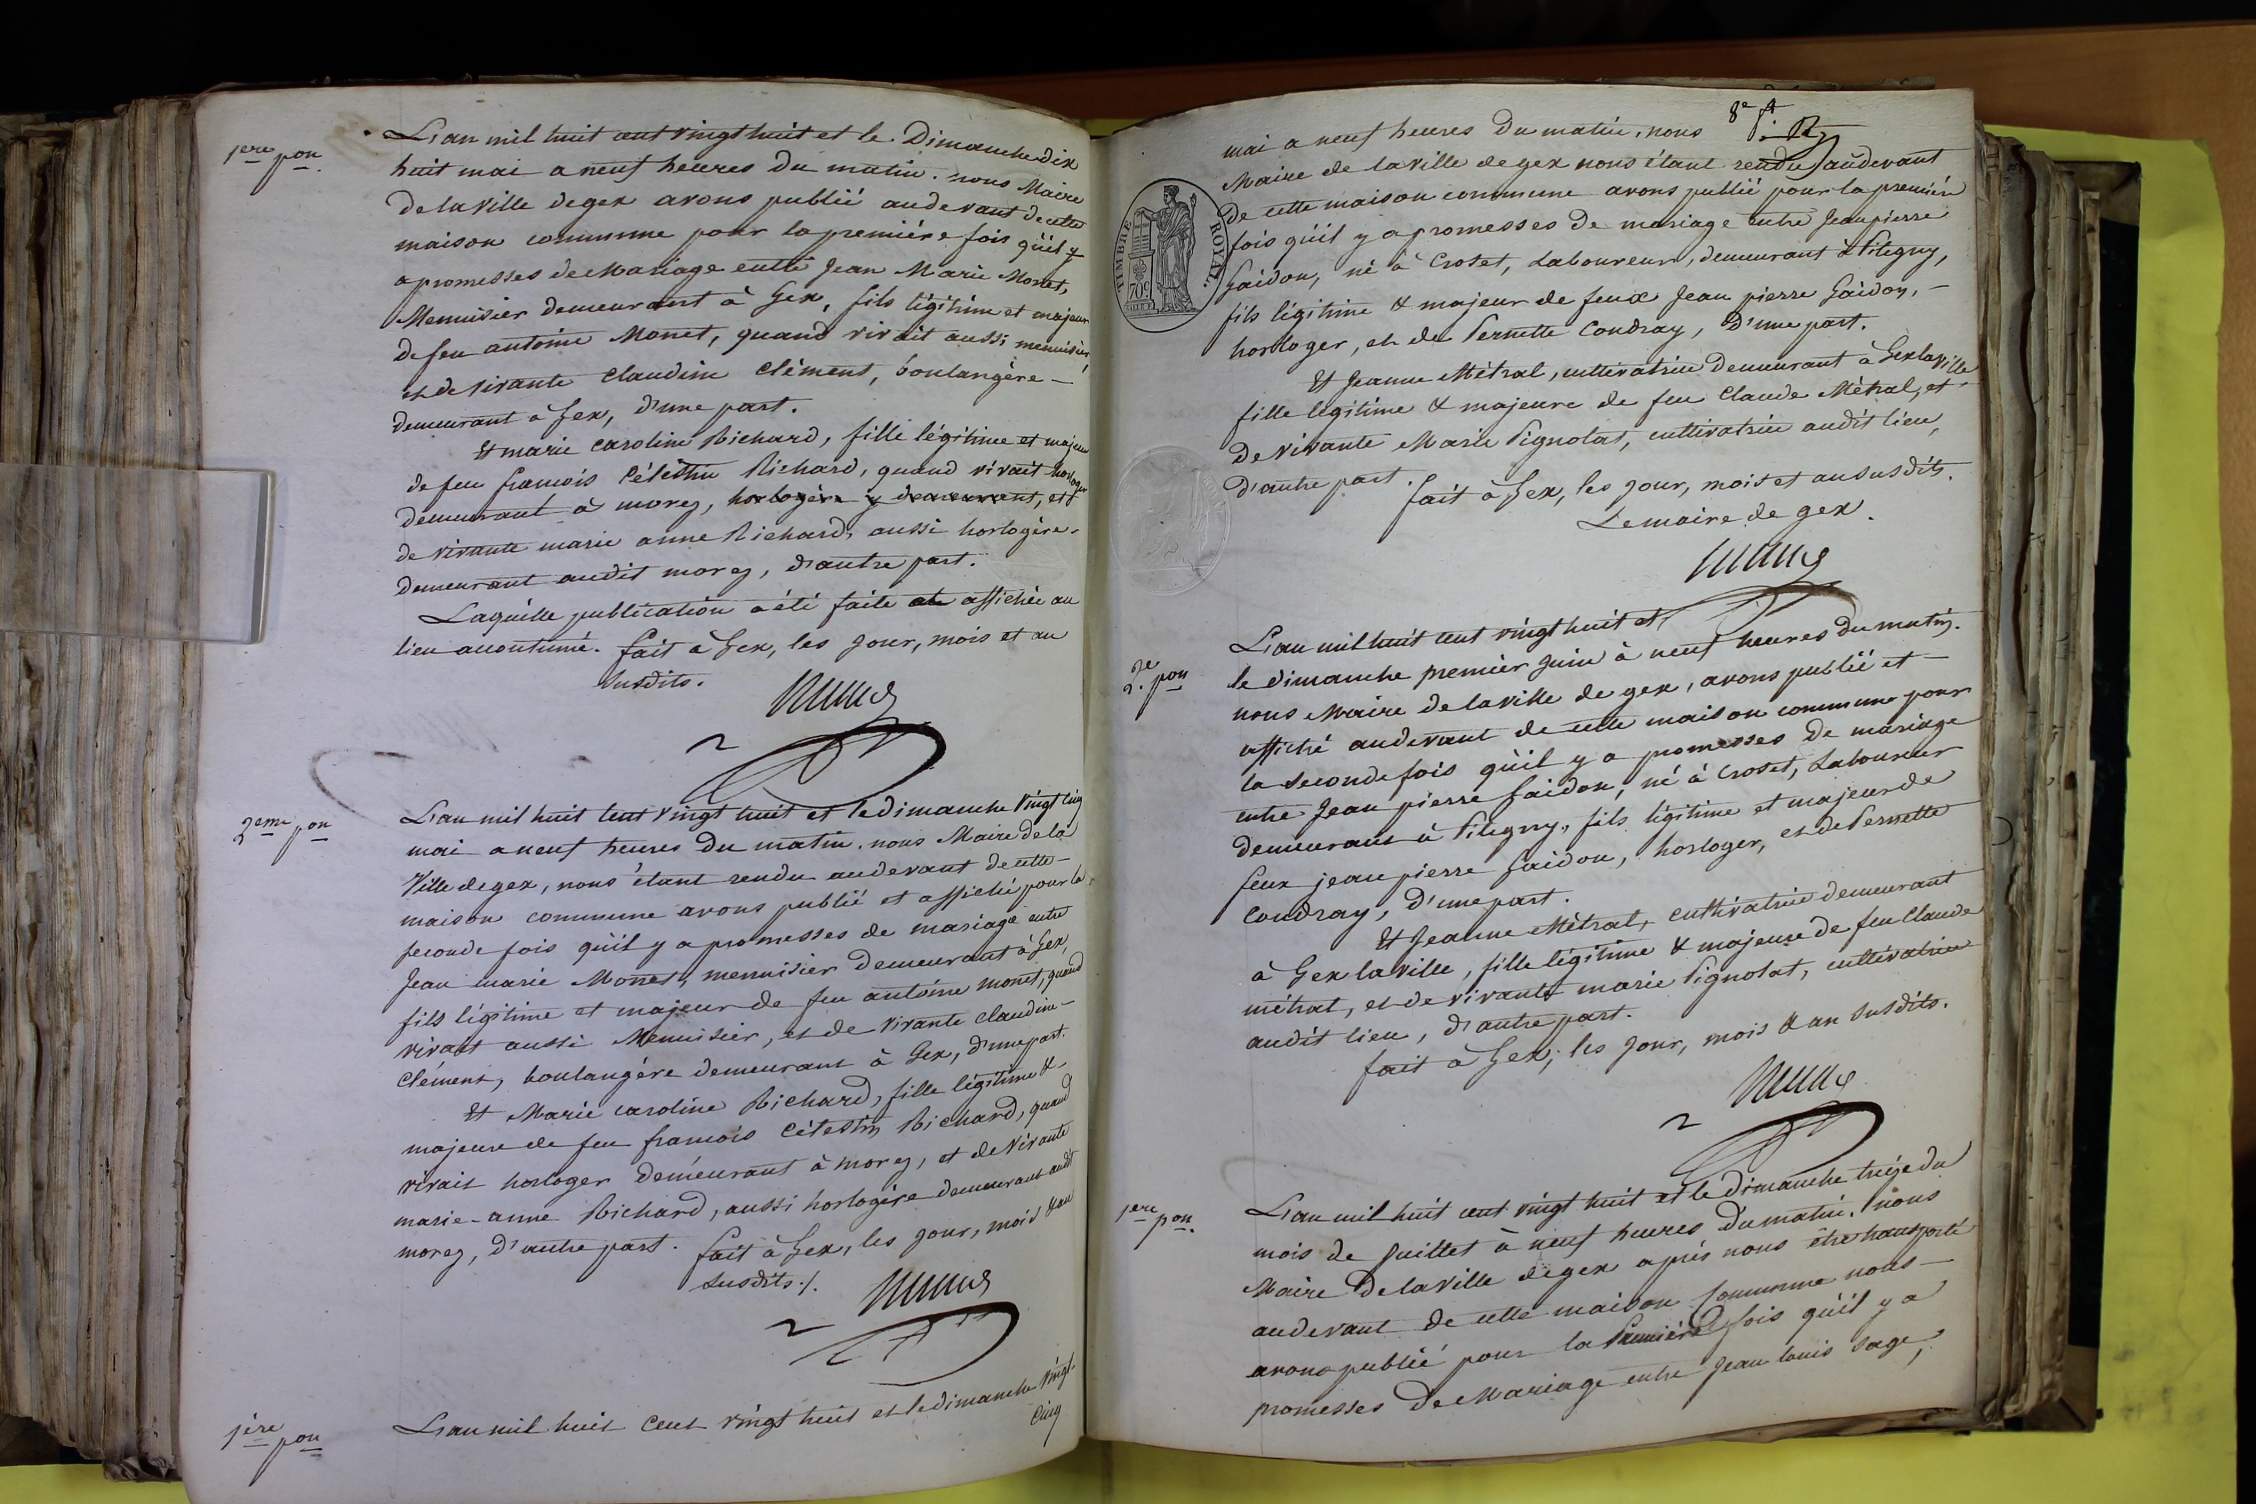 1ere pon.
L'an mil huit cent vingt huit et le Dimanche dix
huit mai a neuf heures du matin. nous Maire
de la ville de gex avons publié au devant de cette
maison commune pour la première fois qu'il y
a promesses de Mariage entre Jean Marie Monet,
Menuisier demeurant à Gex, fils légitime et majeur
de feu antoine Monet, quand vivait aussi menuisier,
et de vivante Claudine Clément, boulangère –
demeurant à Gex, d'une part.
Et marie caroline Richard, fille légitime et majeure
de feu francois Célestin Richard, quand vivait horloger
demeurant à morez, horlogère y demeurant, et
de vivante marie anne Richard, aussi horlogère.
demeurant audit morez, d'autre part.
Laquelle publication a été faite et affichée au
lieu accoutumé. fait à Gex, les jour, mois et an
susdits.
2eme pon
L'an mil huit cent vingt huit et le dimanche vingt cinq
mai a neuf heures du matin. nous Maire de la
Ville de gex, nous étant rendu au devant de cette –
maison commune avons publié et affiché pour la
seconde fois qu'il y a promesses de mariage entre
Jean marie Monet, menuisier demeurant à Gex,
fils légitime et majeur de feu antoine monet, quand
vivait aussi Menuisier, et de vivante Claudine –
Clément, boulangère demeurant à Gex, d'une part.
Et Marie caroline Richard, fille légitime & –
majeure de feu francois Célestin Richard, quand
vivait horloger demeurant à morez, et de vivante
marie-anne Richard, aussi horlogère demeurant audit
morez, d'autre part. fait à Gex, les jour, mois & an
susdits ./.
1ère pon
L'an mil huit cent vingt huit et le dimanche vingt-
cinq
8e f.
mai a neuf heures du matin, nous
Maire de la ville de gex nous étant rendu au devant
de cette maison commune avons publié pour la première
fois qu'il y a promesses de mariage entre Jean pierre
Gaidon, né à Crozet, Laboureur, demeurant à Pitegny,
fils légitime & majeur de feux Jean pierre Gaidon, –
horloger, et de Pernette Condray, d'une part.
Et Jeanne Métral, cultivatrice demeurant à Gex la ville
fille légitime & majeure de feu Claude Métral, et –
de vivante Marie Pignolat, cultivatrice audit lieu,
d'autre part. fait à Gex, les jour, mois et an susdits.
Le maire de gex.
TIMBRE ROYAL.
70c
2e. pon
L'an mil huit cent vingt huit et
le dimanche premier Juin à neuf heures du matin.
nous Maire de la ville de gex, avons publié et –
affiché au devant de cette maison commune pour
la seconde fois qu'il y a promesses de mariage
entre Jean pierre Gaidon, né à Crozet, Laboureur
demeurant à Pitegny, fils légitime et majeur de
feux jean pierre Gaidon, horloger, et de Pernette
Condray, d'une part.
Et Jeanne Métral, cultivatrice demeurant
à Gex la ville, fille légitime & majeure de feu Claude
métral, et de vivante marie Pignolat, cultivatrice
audit lieu, d'autre part.
fait à Gex, les jour, mois & an susdits.
1ere pon.
L'an mil huit cent vingt huit et le dimanche treize du
mois de Juillet à neuf heures du matin. nous
Maire de la Ville de gex après nous être transporté
au devant de cette maison Commune nous –
avons publié pour la première fois qu'il y a
promesses de Mariage entre Jean louis Sage,